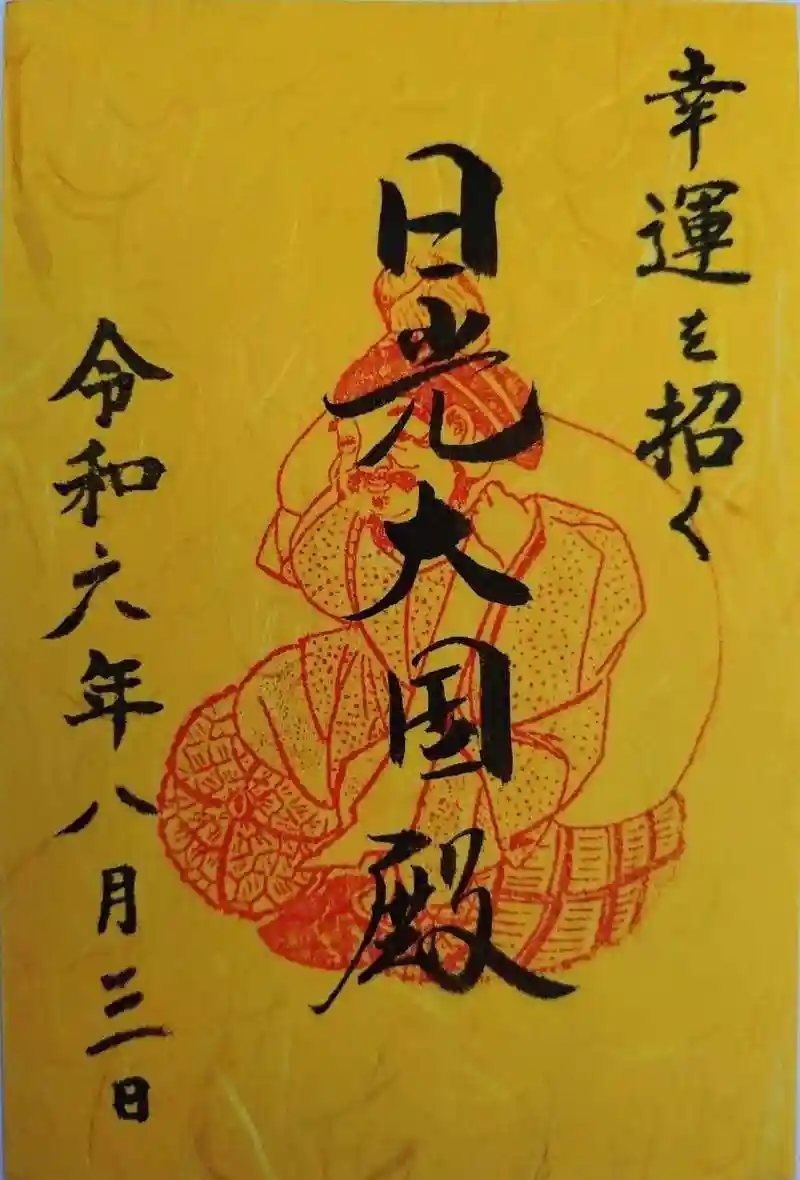 幸運を招く
日光大国殿
令和六年八月三日